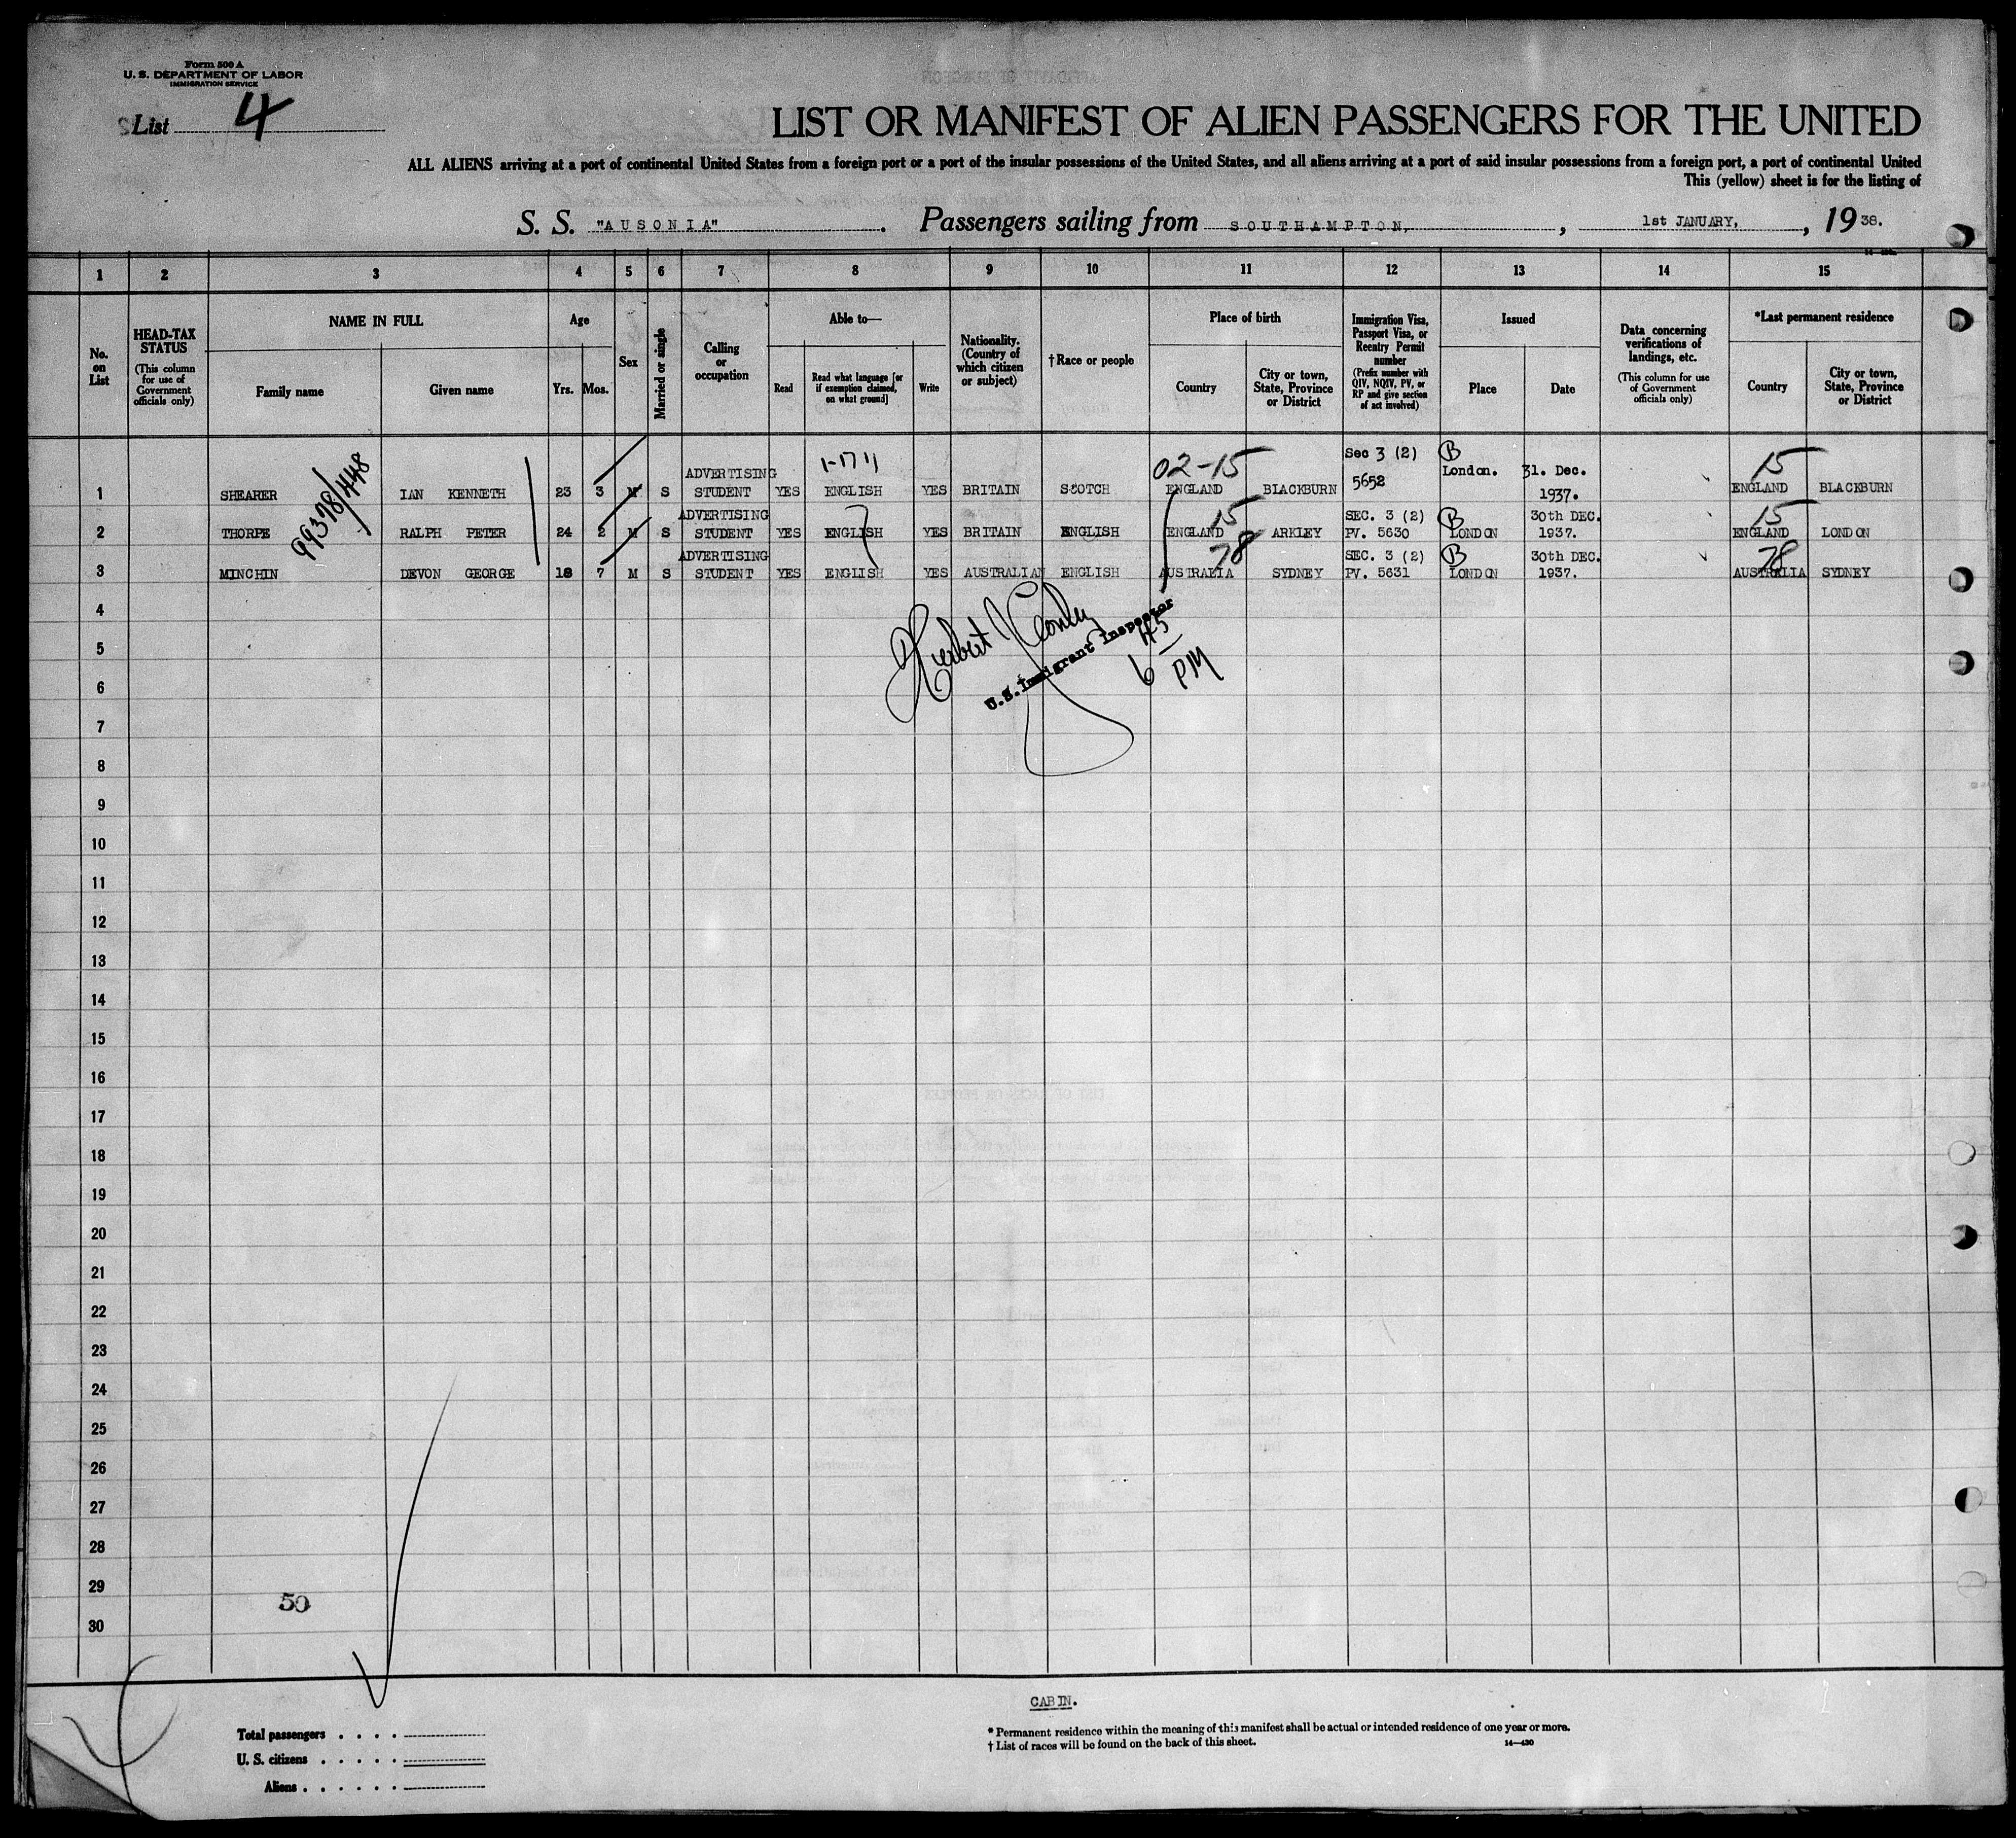 Form 500 A
U. S. DEPARTMENT OF LABOR
IMMIGRATION SERVICE
List 4
LIST OR MANIFEST OF ALIEN PASSENGERS FOR THE UNITED
ALL ALIENS arriving at a port of continental United States from a foreign port or a port of the insular possessions of the United States, and all aliens arriving at a port of said insular possessions from a foreign port, a port of continental United
This (yellow) sheet is for the listing of
S. S. "AUSONIA". Passengers sailing from SOUTHAMPTON, , 1st JANUARY, , 19 38.
1 2 3 4 5 6 7 8 9 10 11 12 13 14 15
No. on List
HEAD-TAX STATUS
(This column for use of Government officials only)
NAME IN FULL
Family name
Given name
Age
Yrs. Mos.
Sex
Married or single
Calling or occupation
Able to—
Read
Read what language [or if exemption claimed, on what ground]
Write
Nationality. (Country of which citizen or subject)
†Race or people
Place of birth
Country
City or town, State, Province or District
Immigration Visa, Passport Visa, or Reentry Permit number
(Prefix number with QIV, NQIV, PV, or RP and give section of act involved)
Issued
Place
Date
Data concerning verifications of landings, etc.
(This column for use of Government officials only)
*Last permanent residence
Country
City or town, State, Province or District
99378/448
02-15 Sec 3 (2) B 15
ADVERTISING London. 31. Dec.
1 SHEARER IAN KENNETH 23 3 M S STUDENT YES ENGLISH YES BRITAIN SCOTCH ENGLAND BLACKBURN 5652 1937. ENGLAND BLACKBURN
ADVERTISING 15 SEC. 3 (2) B 30th DEC. 15
2 THORPE RALPH PETER 24 2 M S STUDENT YES ENGLISH YES BRITAIN ENGLISH ENGLAND ARKLEY PV. 5630 LONDON 1937. ENGLAND LONDON
ADVERTISING 78 SEC. 3 (2) B 30th DEC. 78
3 MINCHIN DEVON GEORGE 18 7 M S STUDENT YES ENGLISH YES AUSTRALIAN ENGLISH AUSTRALIA SYDNEY PV. 5631 LONDON 1937. AUSTRALIA SYDNEY
4
Herbert
U.S. Immigrant Inspector
6 45 PM
5
6
7
8
9
10
11
12
13
14
15
16
17
18
19
20
21
22
23
24
25
26
27
28
29
50
30
CABIN.
Total passengers . . . .
U. S. citizens . . . . .
Aliens . . . . . .
* Permanent residence within the meaning of this manifest shall be actual or intended residence of one year or more.
† List of races will be found on the back of this sheet.
14—430